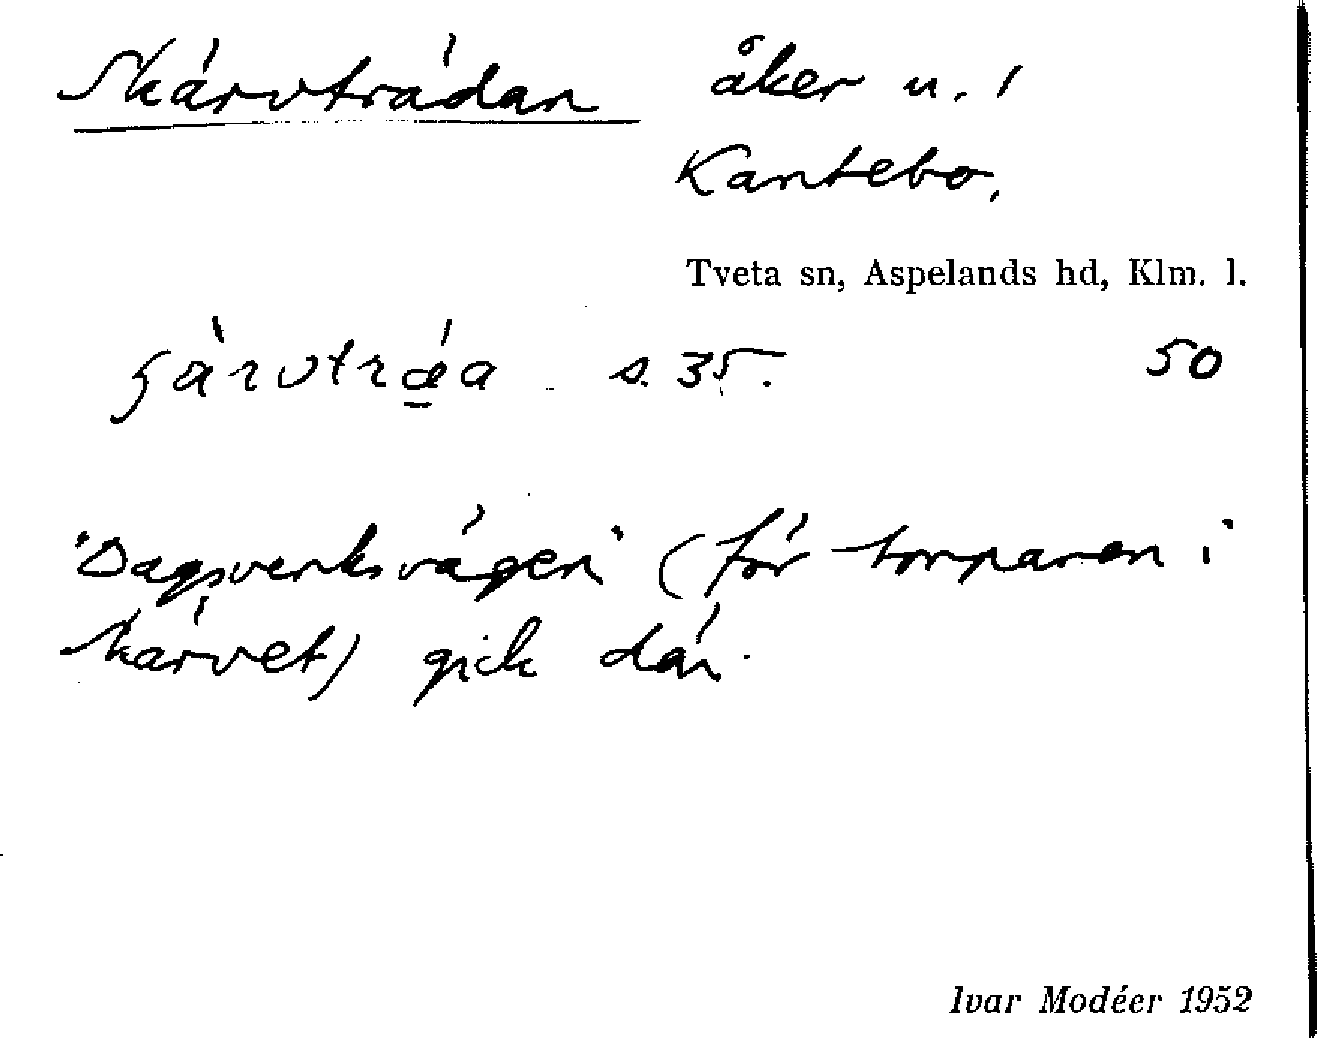 Skärvträdan åker u. 1
Kantebo,
Tveta sn, Aspelands hd, Klm. l.
s. 35. 50
"Dagsverksvägen" (för torparen i
Skärvet) gick där.
Ivar Modéer 1952